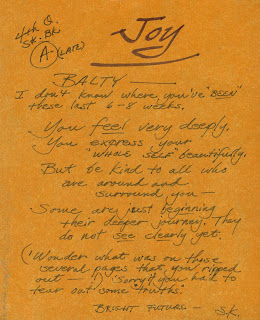 4th Q.
SK. BK
A- (LATE)
Joy
BALTY —
I don't know where you've "BEEN"
these last 6-8 weeks.
You feel very deeply.
You express your
"WHOLE SELF" beautifully.
But be kind to all who
are around and
surround you —
Some are just beginning
their deeper journey. They
do not see clearly yet.
(Wonder what was on those
several pages that you ripped
out — "Sorry" you had to
tear out some "truths."
BRIGHT FUTURE — S.K.